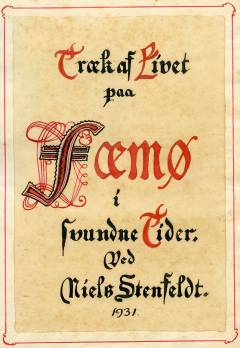 Træk af Livet
paa
Fæmø
i
svundne Tider.
Ved
Niels Stenfeldt.
1931.